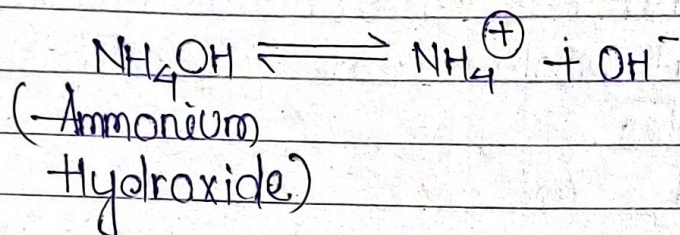 NH₄OH ⇌ NH₄⊕ + OH⁻
(Ammonium
Hydroxide)